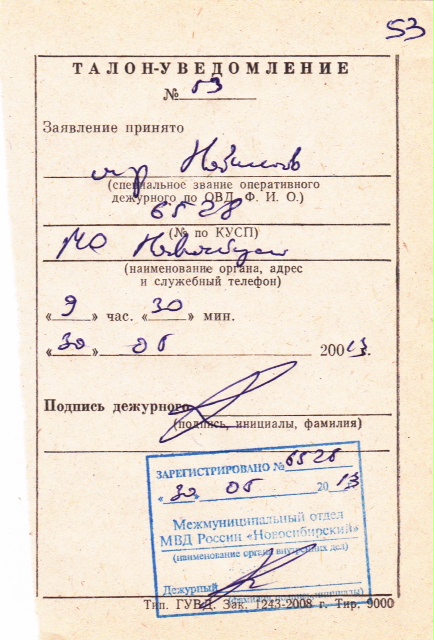 53
ТАЛОН-УВЕДОМЛЕНИЕ
№ 53
Заявление принято
(специальное звание оперативного
дежурного по ОВД, Ф. И. О.)
6528
(№ по КУСП)
МО
(наименование органа, адрес
и служебный телефон)
«9» час. «30» мин.
«30» 05 20013.
Подпись дежурного
(подпись, инициалы, фамилия)
ЗАРЕГИСТРИРОВАНО № 6528
«30» 05 2013
Межмуниципальный отдел
МВД России «Новосибирский»
(наименование органа внутренних дел)
Дежурный
Тип. ГУВД. Зак. 1243-2008 г. Тир. 9000